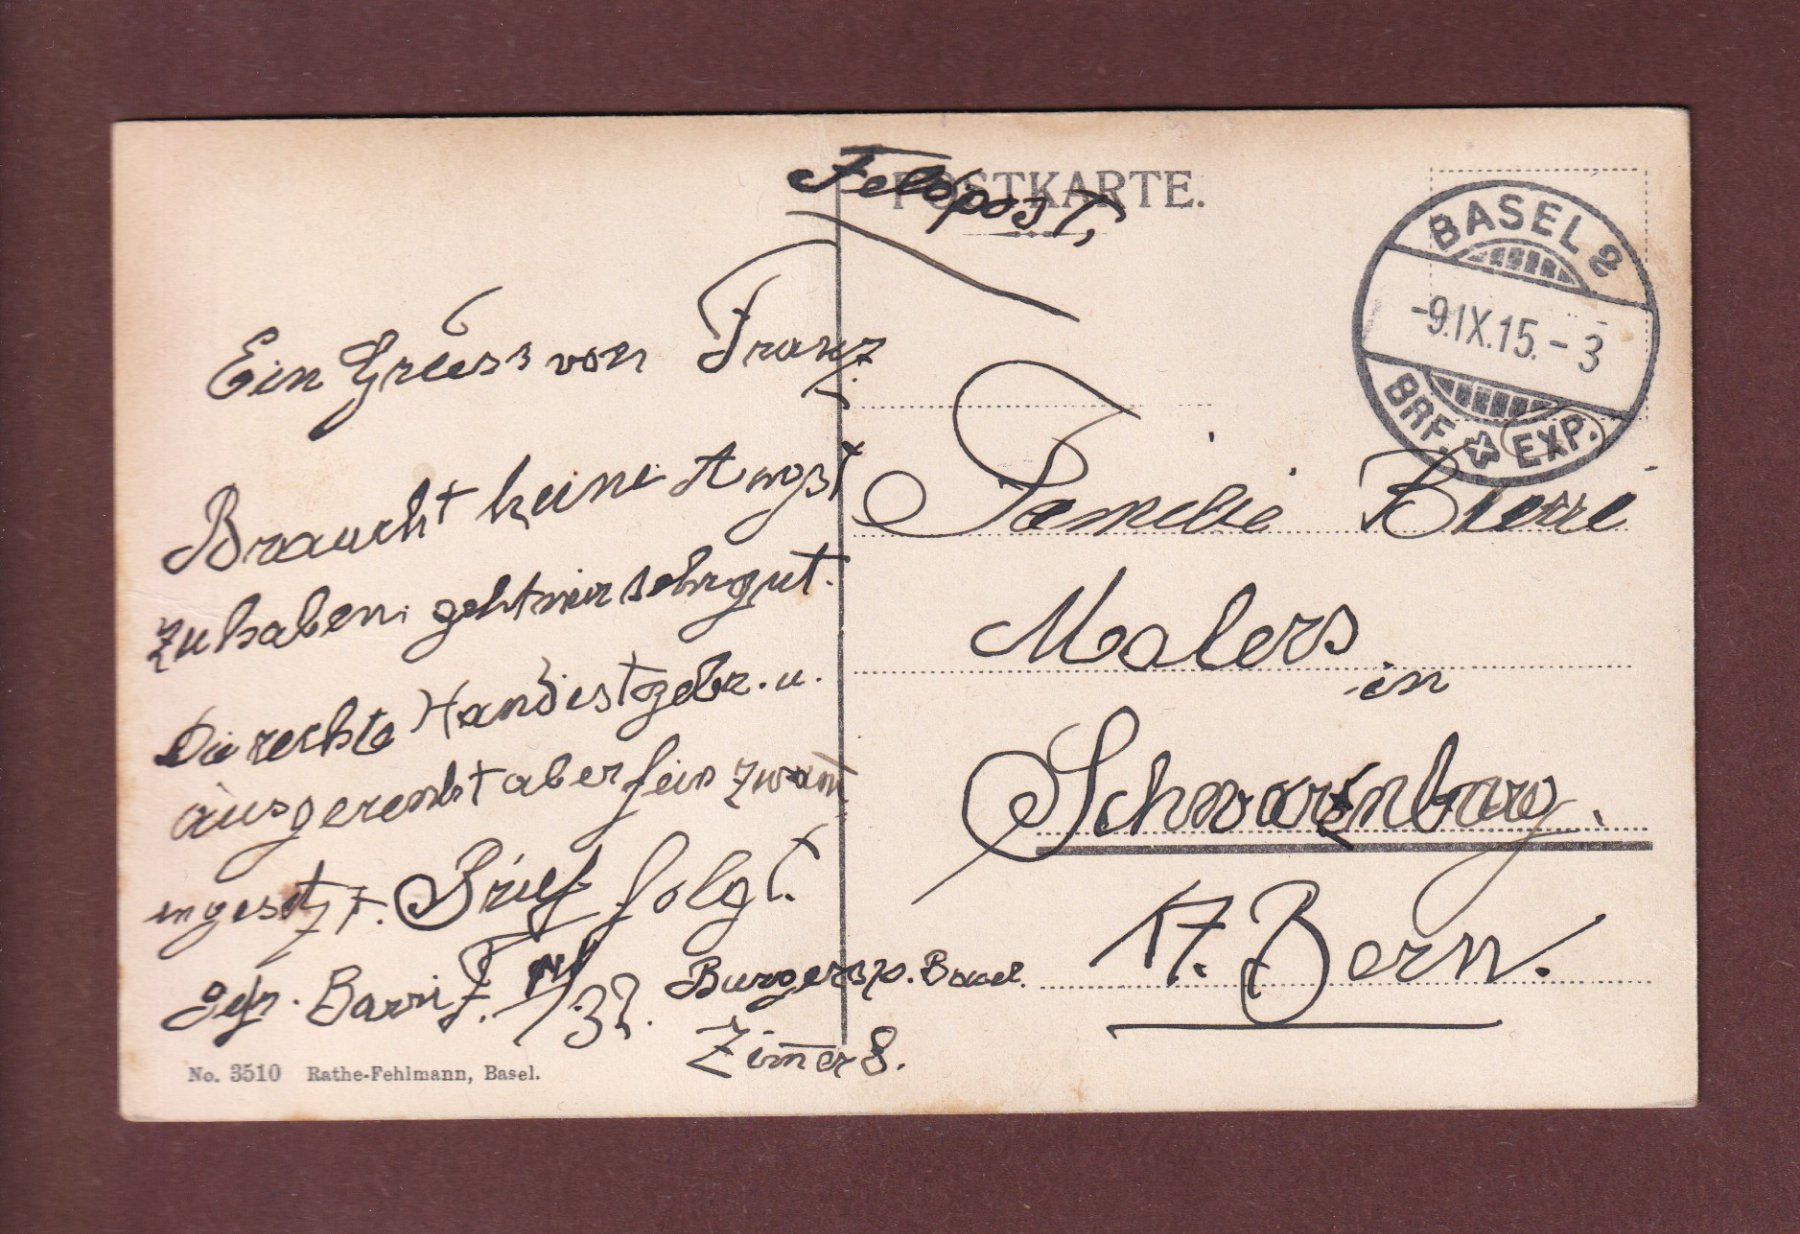 Feldpost,
POSTKARTE.
BASEL 2
-9.IX.15.-3
BRF. EXP.
Ein Gruss von Franz.
Braucht keine Angst
zu haben. geht mir sehr gut.
Die rechte Hand ist gebr. u.
ausgerenkt aber fein zwam
ingesetzt. Brief folgt.
F. /37. Burgersp. Basel.
Zimer 8.
No. 3510 Rathe-Fehlmann, Basel.
Familie
Malers
in
Schwarzenburg.
Kt. Bern.